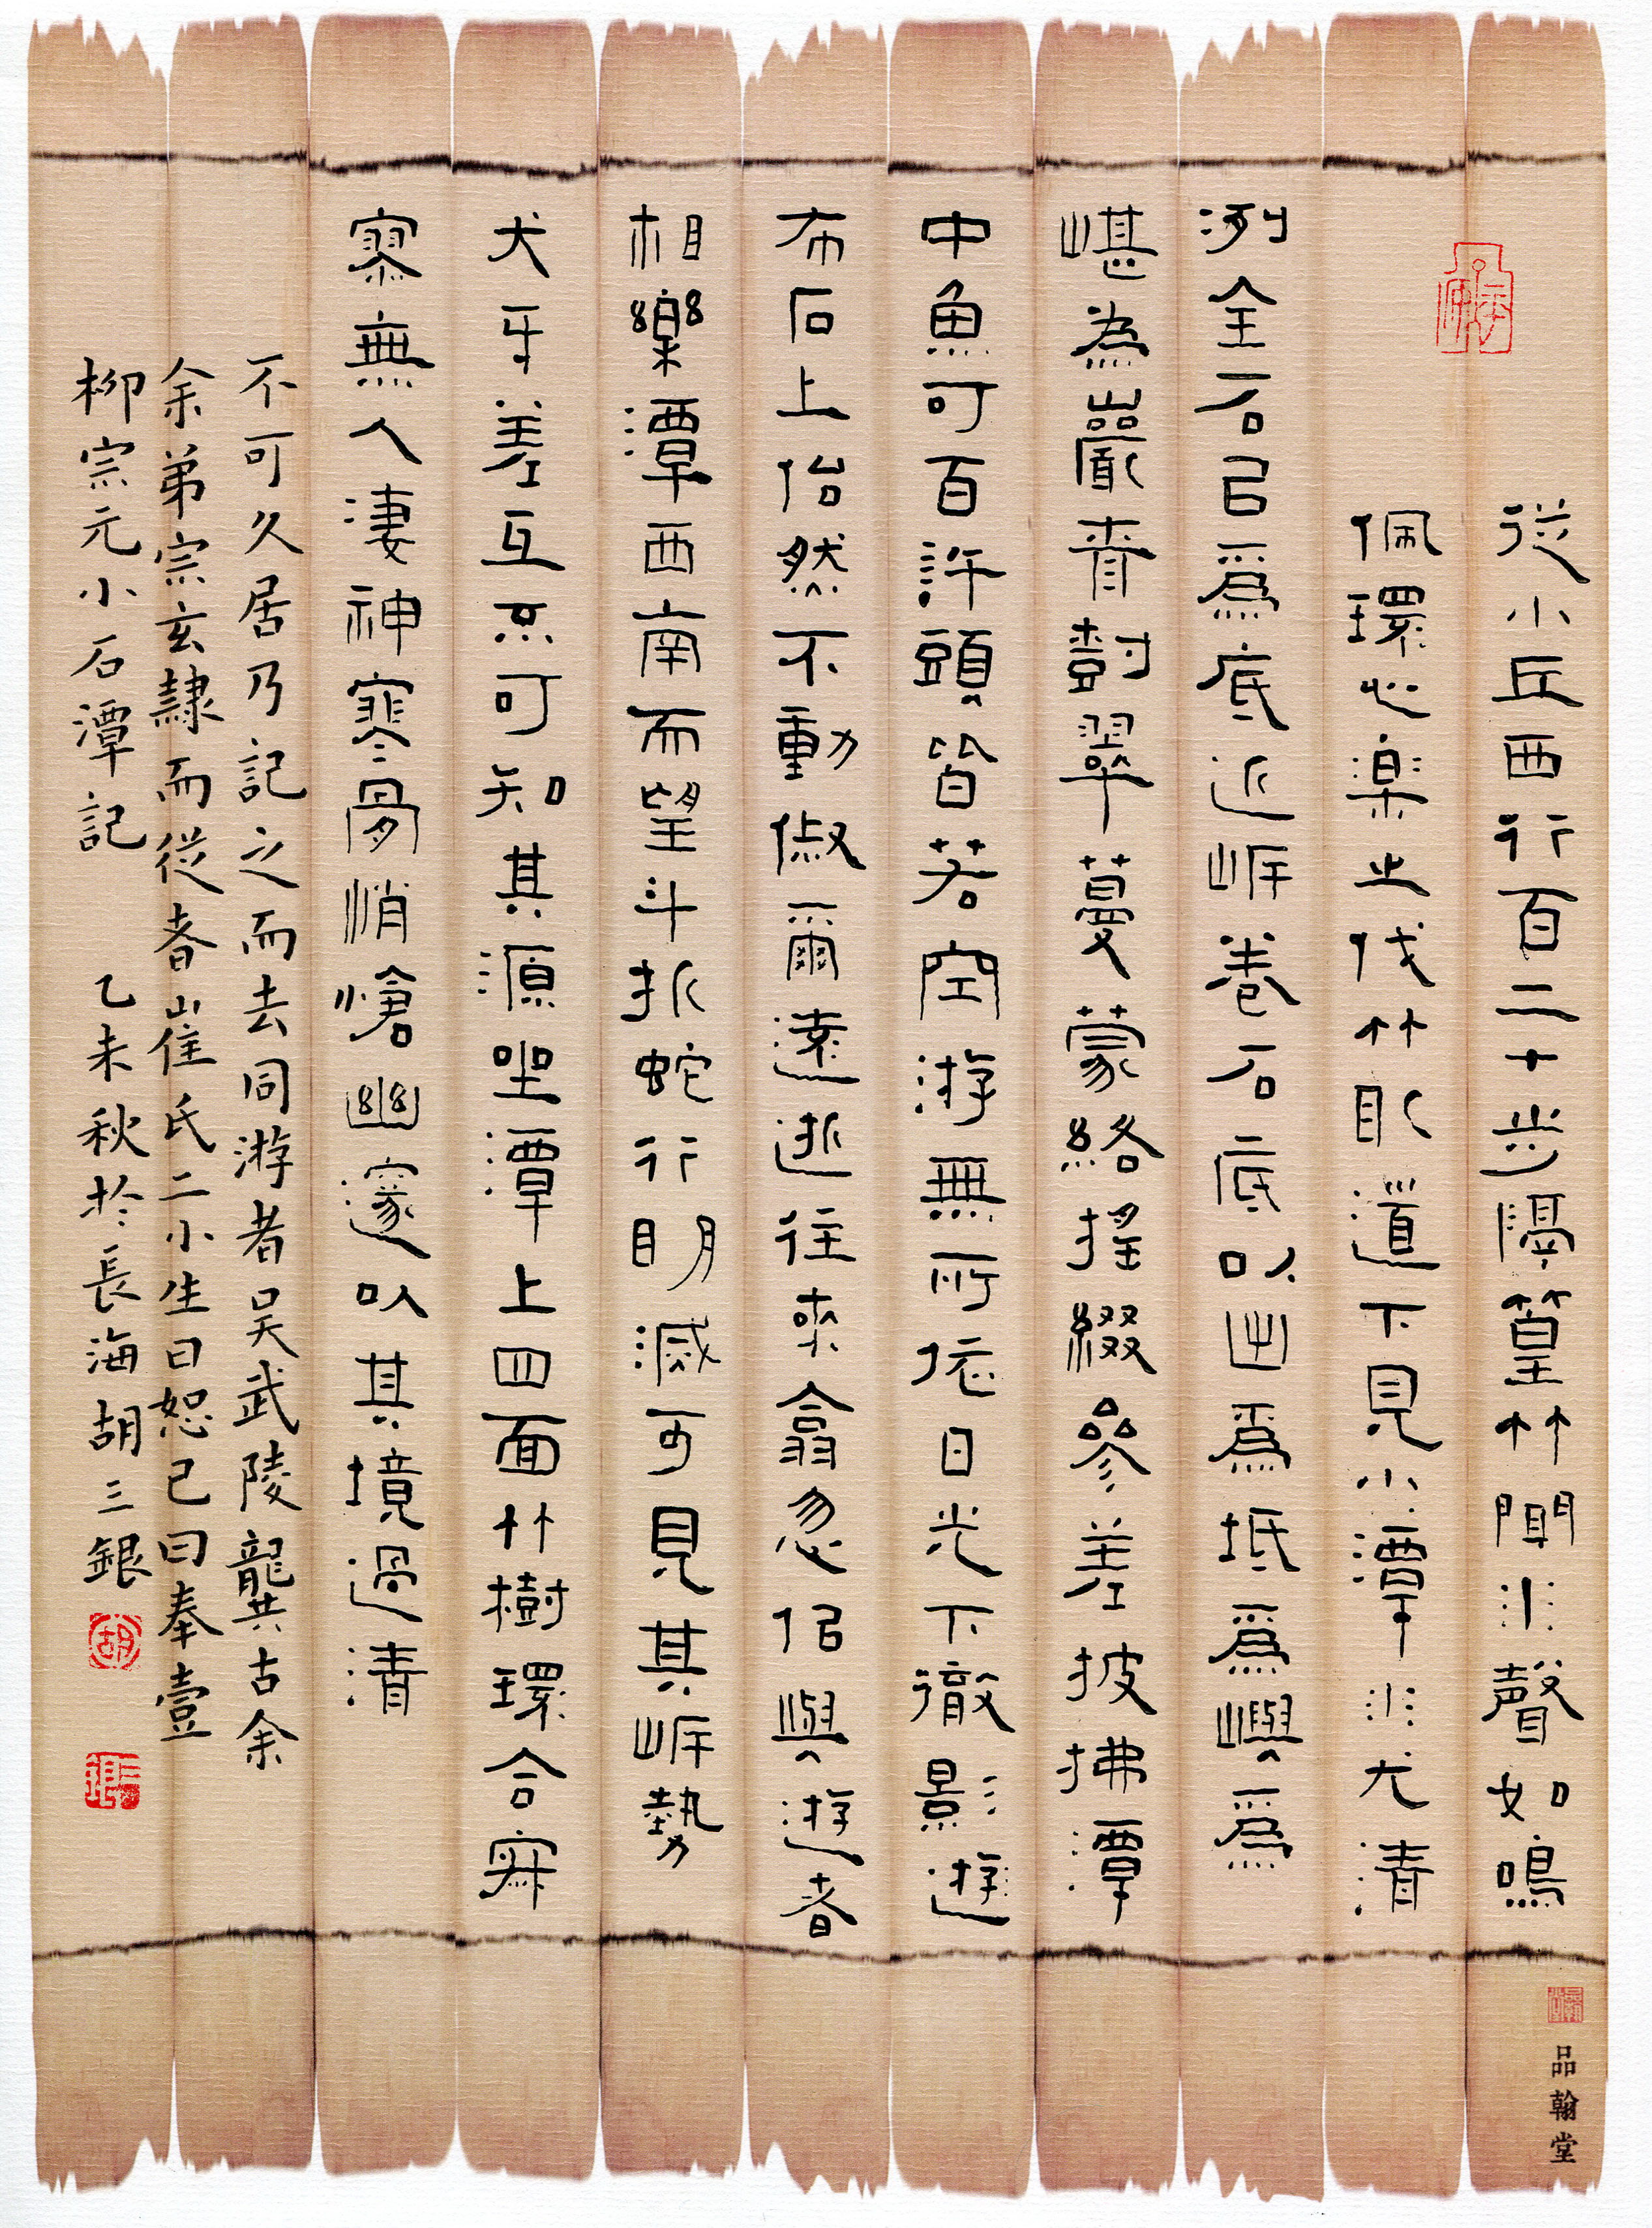 從小丘西行百二十步隔篁竹聞水聲如鳴
佩環心樂之伐竹取道下見小潭水尤清
冽全石以爲底近岸卷石底以出爲坻爲嶼爲
嵁為巖青樹翠蔓蒙絡搖綴參差披拂潭
中魚可百許頭皆若空游無所依日光下徹影遊
布石上佁然不動俶爾遠逝往來翕忽佀與遊者
相樂潭西南而望斗折蛇行明滅可見其岸勢
犬牙差互不可知其源坐潭上四面竹樹環合寂
寥無人淒神寒骨悄愴幽邃以其境過清
不可久居乃記之而去同游者吴武陵龔古余
余弟宗玄隸而從者崔氏二小生曰恕己曰奉壹
柳宗元小石潭記 乙未秋於長海胡三銀
胡
品翰堂